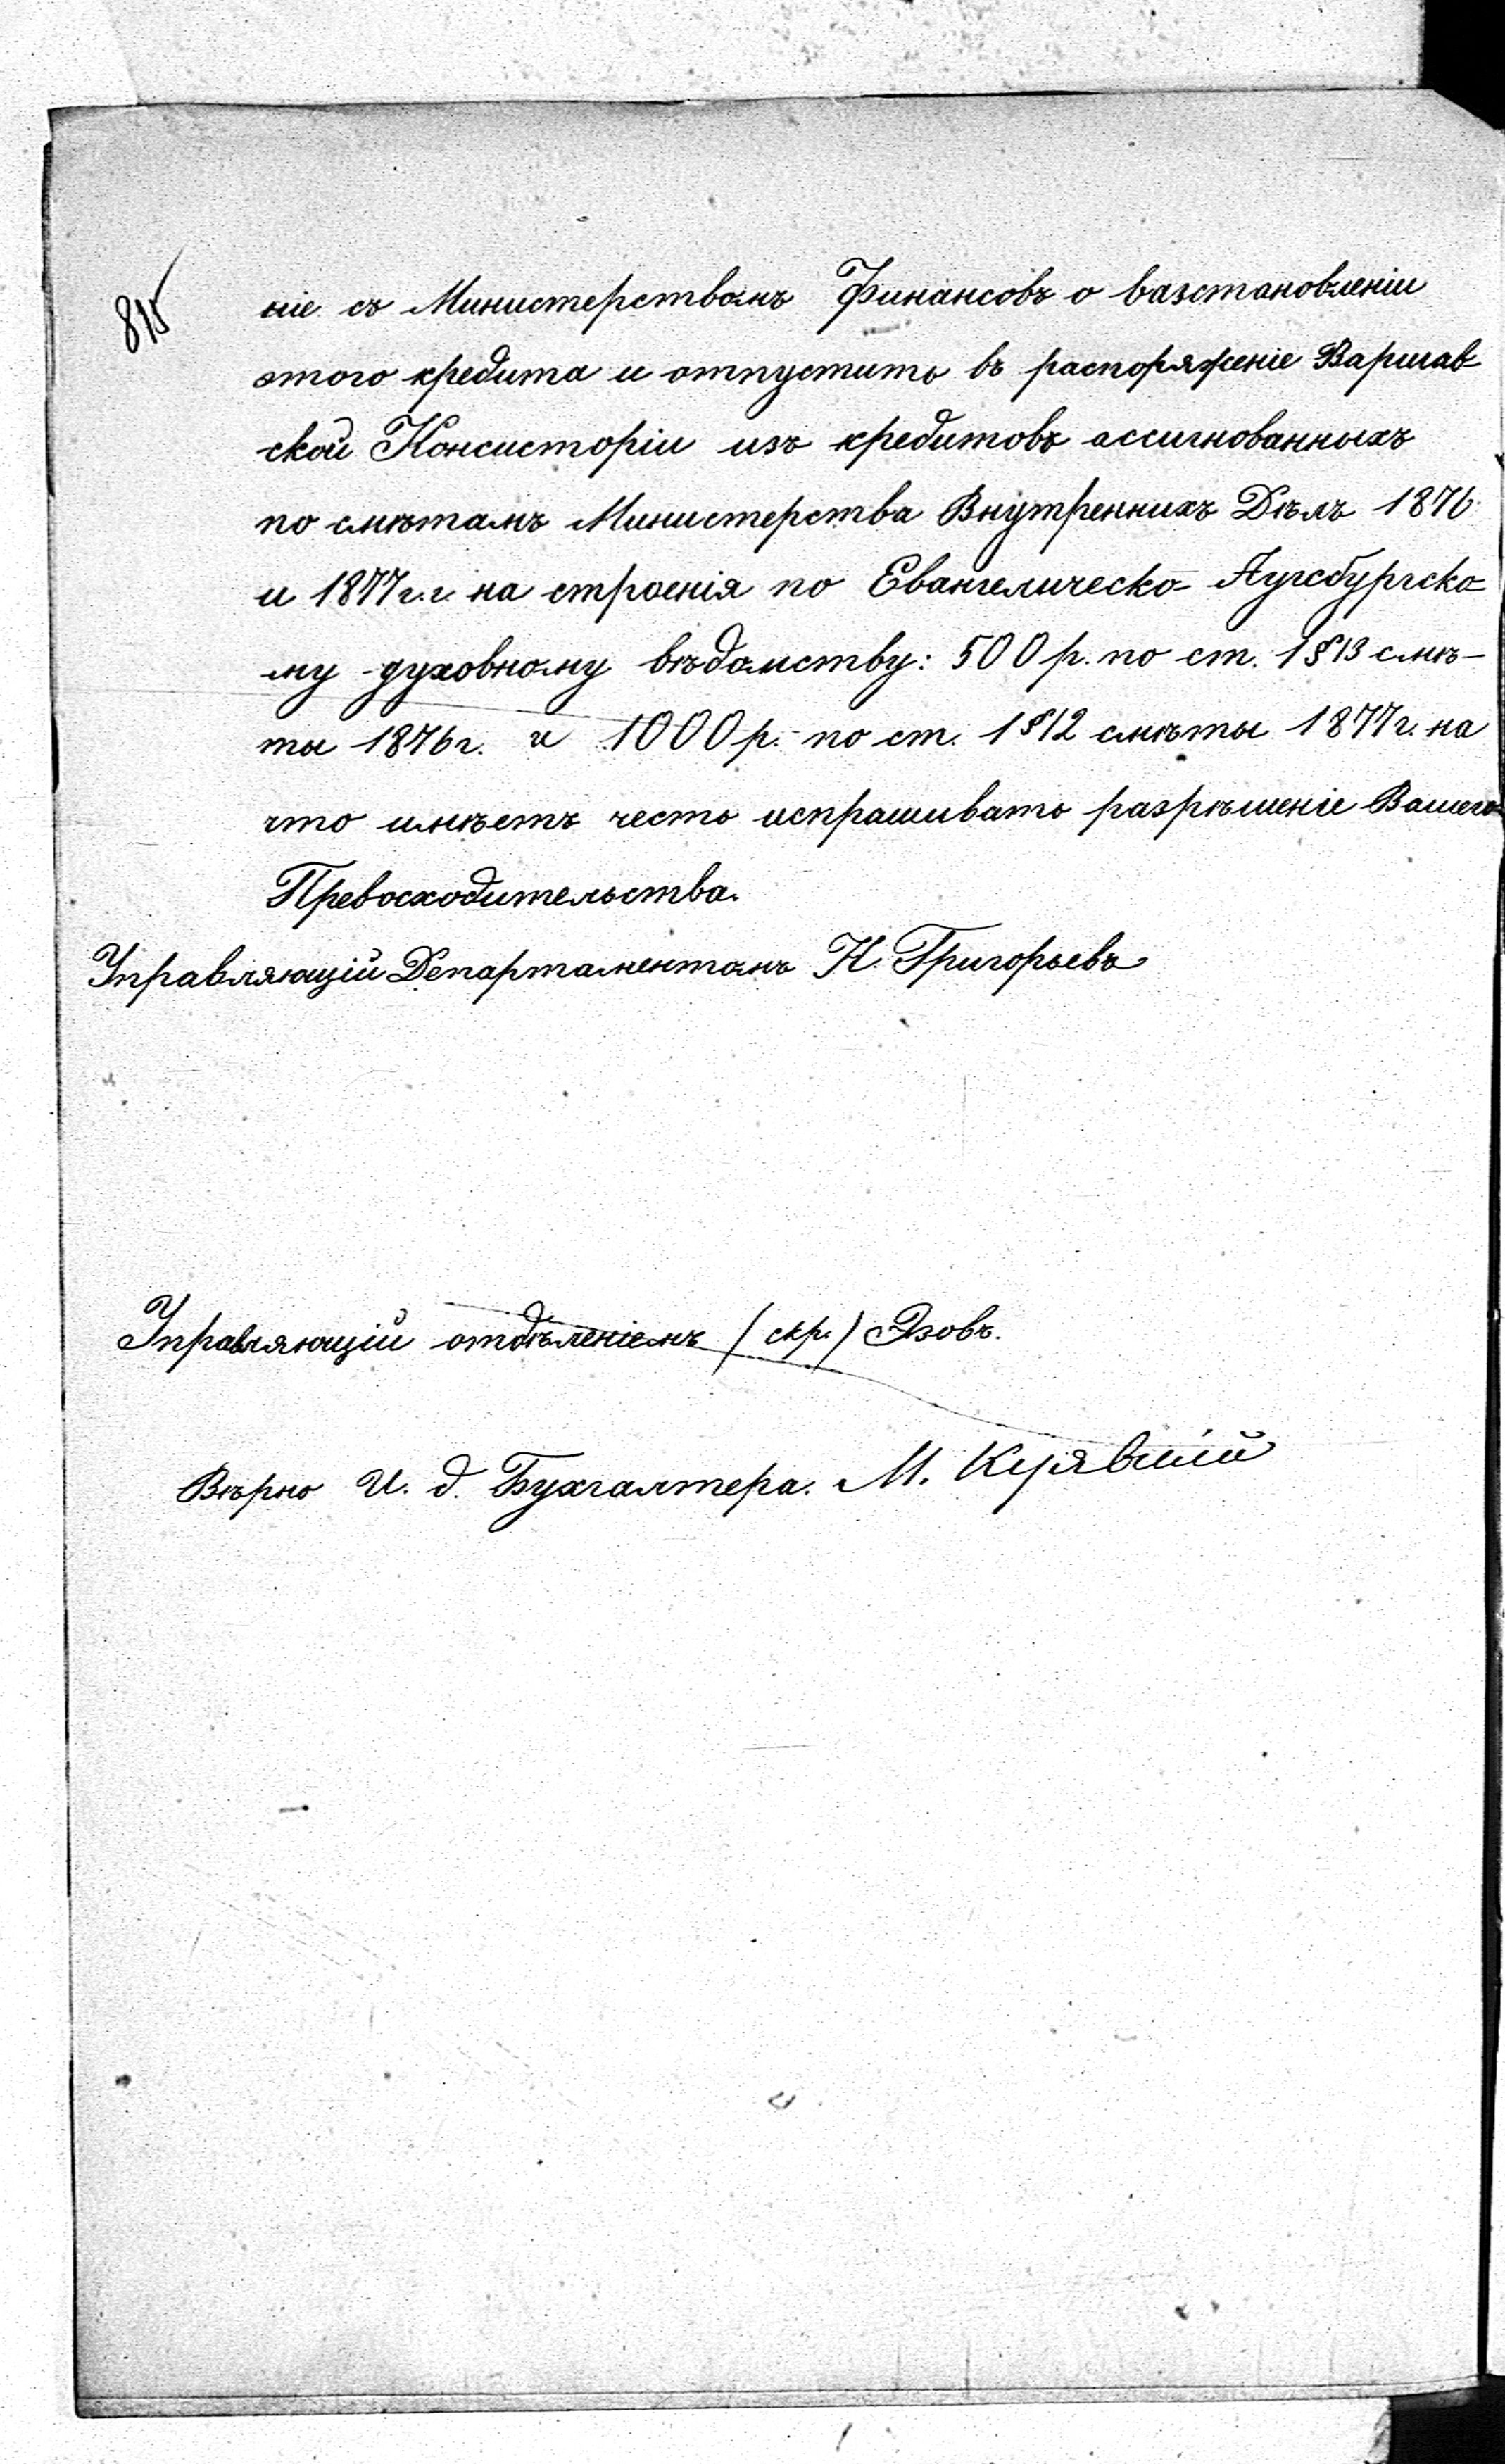 815
ніе съ Министерствомъ Финансовъ о возстановленіи
этого кредита и отпустить въ распоряженіе Варшав-
ской Консисторіи изъ кредитовъ ассигнованныхъ
по смѣтамъ Министерства Внутреннихъ Дѣлъ 1876
и 1877 г.г. на строенія по Евангелическо-Аугсбургско-
му духовному вѣдомству: 500 р. по ст. 1 § 13 смѣ-
ты 1876 г. и 1000 р. по ст. 1 § 12 смѣты 1877 г. на
что имѣетъ честь испрашивать разрѣшеніе Вашего
Превосходительства.
Управляющій Департаментомъ Н. Григорьевъ
Управляющій отдѣленіемъ (скр.)
Вѣрно И. д. Бухгалтера. М.